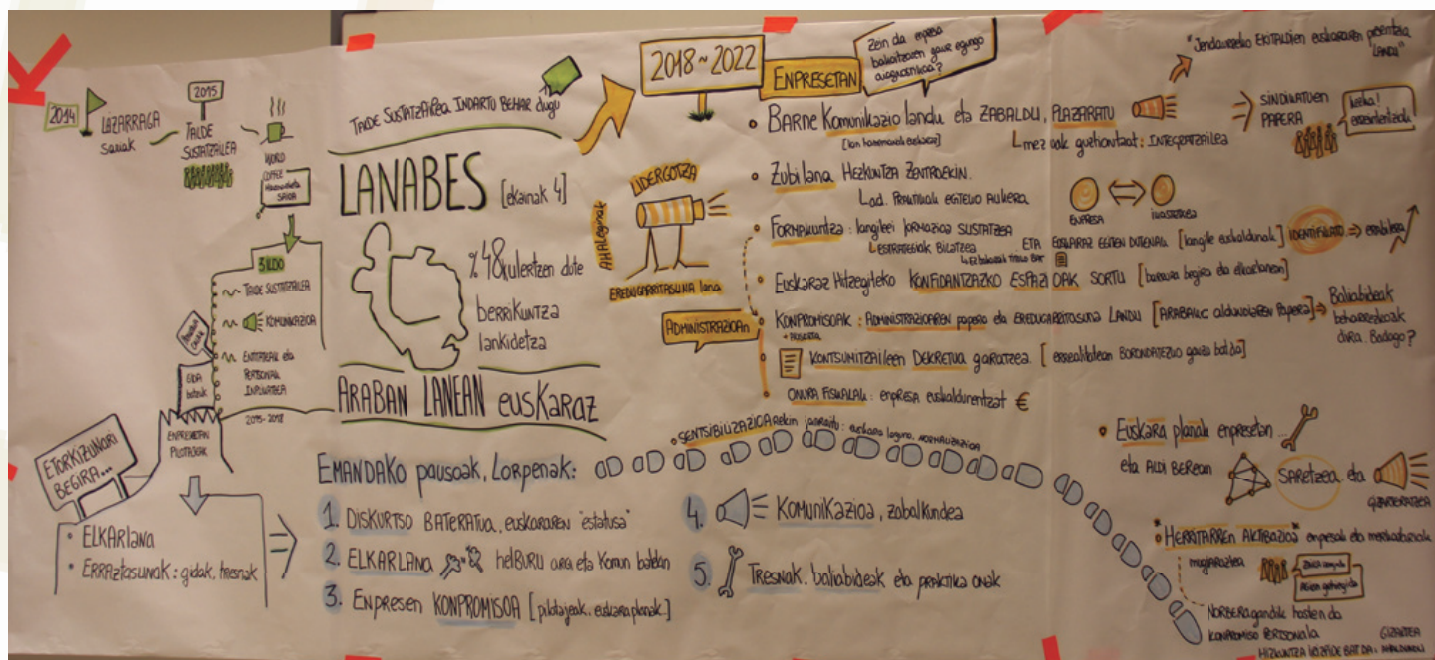 2014
LAZARRAGA
Sariak
2015
TALDE
SUSTATZAILEA
WORLD
COFFEE
SAIOA
3 ILDO
TALDE SUSTATZAILEA
KOMUNIKAZIOA
ENTITATEAK eta
PERTSONAK
INPLIKATZEA
2015-2018
GIDA
batzuk
ENPRESETAN
PILOTAJEAK
ETORKIZUNARI
BEGIRA...
• ELKARlana
• ERRAZTASUNAK: gidak, tresnak
TALDE SUSTATZAILEA INDARTU BEHAR dugu
LANABES [ekainak 4]
%48k ulertzen dute
berrikuntza
lankidetza
ARABAN LANEAN euskaraz
EMANDAKO pausoak, Lorpenak:
1. DISKURTSO BATERATUA, euskararen "estatusa"
2. ELKARLANA helBURU argi eta Komun batekin
3. Enpresen KONPROMISOA [pilotajeak, euskara planak]
4. KOMUNIKAZIOA, zabalkundea
5. TRESNAK, baliabideak eta PRAKTIKA ONAK
2018~2022
ENPRESETAN
Zein da enpresa
bakoitzaren gaur egungo
diagnostikoa?
LIDERGOTZA
AHALEGINAK
EREDUGARRITASUNA lana
ADMINISTRAZIOAN
• BARNE Komunikazio landu eta ZABALDU, PLAZARATU
mezuak guztiontzat: INTEGRATZAILEA
• Zubilana HEZKUNTZA ZENTROEKIN.
Lad. PRAKTIKAK EGITEKO AUKERA
ENPRESA
IKASTETXEA
• FORMAKUNTZA: langileei FORMAZIOA SUSTATZEA
ESTRATEGIAK BILATZEA
ETA EUSKARAZ EGITEN DUTENAK [langile euskaldunak] IDENTIFIKATU ⇒ erabilera
• Euskaraz Hitzegiteko KONFIDANTZAZKO ESPAZIOAK SORTU [barrura begira eta elkarlanean]
• KONPROMISOAK: ADMINISTRAZIOAREN papera eta EREDUGARRITASUNA LANDU [ARABAKO aldundiaren PAPERA] ⇒ Baliabideak
beharrezkoak
dira. Badago?
• KONTSUMITZAILEEN DEKRETUA garatzea. [errealitatean BORONDATEZKO gauza bat da]
• ONURA FISKALAK: enpresa euskaldunentzat €
• SENTSIBILIZAZIOAREKIN jarraitu: euskara laguna, NORMALIZAZIOA
"Jendaurreko EKITALDIEN euskararen presentzia
LANDU"
SINDIKATUEN
PAPERA
• Euskara planak enpresetan...
eta ALDI BEREAN
SARETZEA eta
• "HERRITARREN AKTIBAZIOA" enpresak eta merkatariak
mugiaraztea
NORBERAgandik hasten da
KONPROMISO PERTSONALA